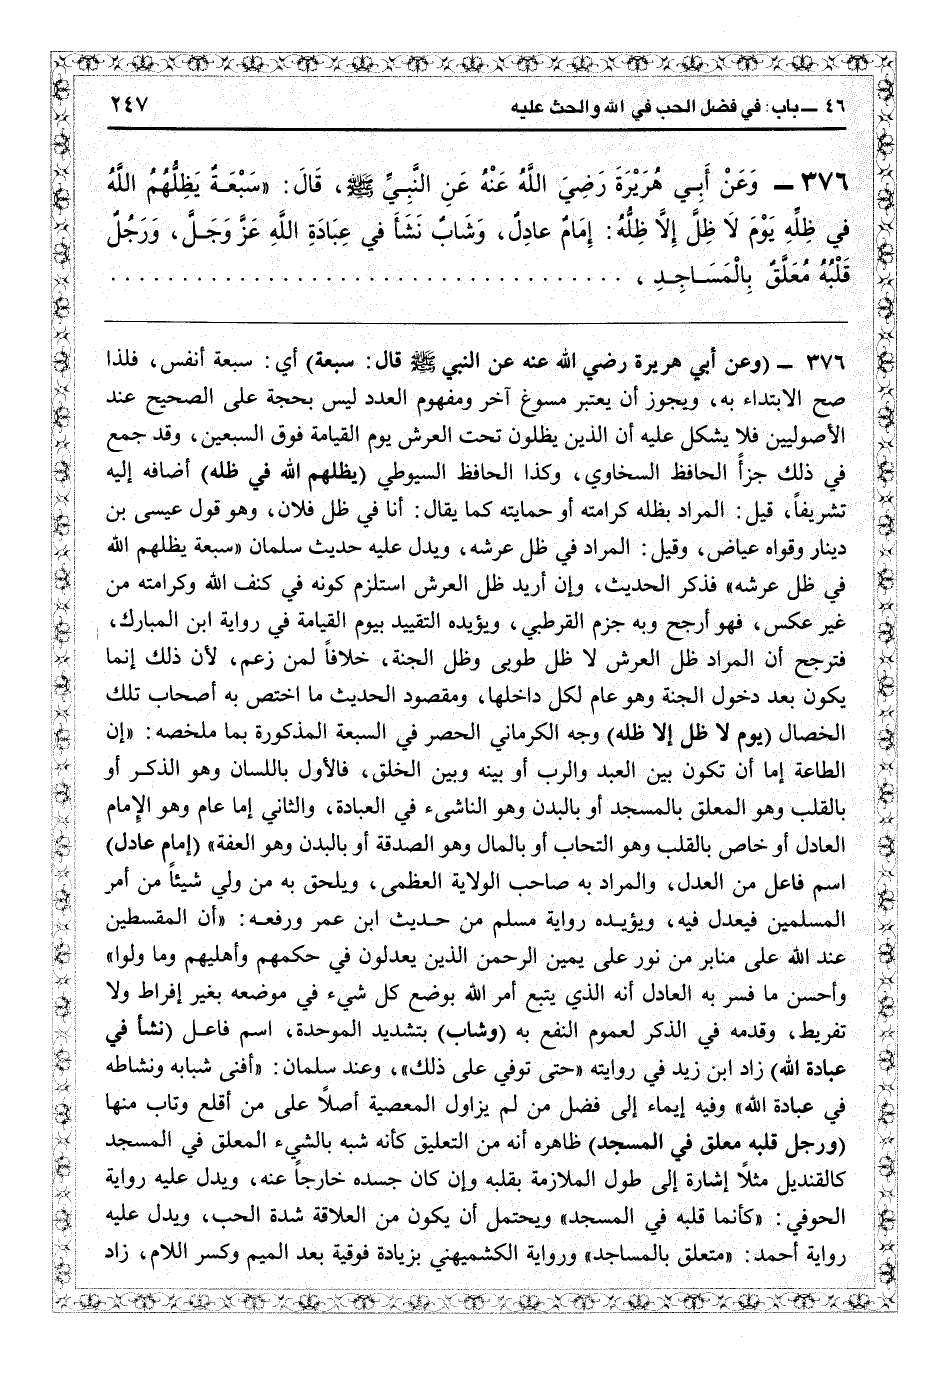 ٤٦ ــ باب: في فضل الحب في الله والحث عليه ٢٤٧
٣٧٦ ــ وَعَنْ أَبِي هُرَيْرَةَ رَضِيَ اللَّهُ عَنْهُ عَنِ النَّبِيِّ ﷺ، قَالَ: «سَبْعَةٌ يَظِلُّهُمُ اللَّهُ
في ظِلِّهِ يَوْمَ لَا ظِلَّ إِلَّا ظِلُّهُ: إِمَامٌ عادِلٌ، وَشَابٌ نَشَأَ في عِبَادَةِ اللَّهِ عَزَّ وَجَلَّ، وَرَجُلٌ
قَلْبُهُ مُعَلَّقٌ بِالْمَسَاجِدِ، ....................................
٣٧٦ ــ (وعن أبي هريرة رضي الله عنه عن النبي ﷺ قال: سبعة) أي: سبعة أنفس، فلذا
صح الابتداء به، ويجوز أن يعتبر مسوغ آخر ومفهوم العدد ليس بحجة على الصحيح عند
الأصوليين فلا يشكل عليه أن الذين يظلون تحت العرش يوم القيامة فوق السبعين، وقد جمع
في ذلك جزأً الحافظ السخاوي، وكذا الحافظ السيوطي (يظلهم الله في ظله) أضافه إليه
تشريفاً، قيل: المراد بظله كرامته أو حمايته كما يقال: أنا في ظل فلان، وهو قول عيسى بن
دينار وقواه عياض، وقيل: المراد في ظل عرشه، ويدل عليه حديث سلمان «سبعة يظلهم الله
في ظل عرشه» فذكر الحديث، وإن أريد ظل العرش استلزم كونه في كنف الله وكرامته من
غير عكس، فهو أرجح وبه جزم القرطبي، ويؤيده التقييد بيوم القيامة في رواية ابن المبارك،
فترجح أن المراد ظل العرش لا ظل طوبى وظل الجنة، خلافاً لمن زعم، لأن ذلك إنما
يكون بعد دخول الجنة وهو عام لكل داخلها، ومقصود الحديث ما اختص به أصحاب تلك
الخصال (يوم لا ظل إلا ظله) وجه الكرماني الحصر في السبعة المذكورة بما ملخصه: «إن
الطاعة إما أن تكون بين العبد والرب أو بينه وبين الخلق، فالأول باللسان وهو الذكر أو
بالقلب وهو المعلق بالمسجد أو بالبدن وهو الناشىء في العبادة، والثاني إما عام وهو الإمام
العادل أو خاص بالقلب وهو التحاب أو بالمال وهو الصدقة أو بالبدن وهو العفة» (إمام عادل)
اسم فاعل من العدل، والمراد به صاحب الولاية العظمى، ويلحق به من ولي شيئاً من أمر
المسلمين فيعدل فيه، ويؤيده رواية مسلم من حديث ابن عمر ورفعه: «أن المقسطين
عند الله على منابر من نور على يمين الرحمن الذين يعدلون في حكمهم وأهليهم وما ولوا»
وأحسن ما فسر به العادل أنه الذي يتبع أمر الله بوضع كل شيء في موضعه بغير إفراط ولا
تفريط، وقدمه في الذكر لعموم النفع به (وشاب) بتشديد الموحدة، اسم فاعل (نشأ في
عبادة الله) زاد ابن زيد في روايته «حتى توفي على ذلك»، وعند سلمان: «أفنى شبابه ونشاطه
في عبادة الله» وفيه إيماء إلى فضل من لم يزاول المعصية أصلاً على من أقلع وتاب منها
(ورجل قلبه معلق في المسجد) ظاهره أنه من التعليق كأنه شبه بالشيء المعلق في المسجد
كالقنديل مثلاً إشارة إلى طول الملازمة بقلبه وإن كان جسده خارجاً عنه، ويدل عليه رواية
الحوفي: «كأنما قلبه في المسجد» ويحتمل أن يكون من العلاقة شدة الحب، ويدل عليه
رواية أحمد: «متعلق بالمساجد» ورواية الكشميهني بزيادة فوقية بعد الميم وكسر اللام، زاد